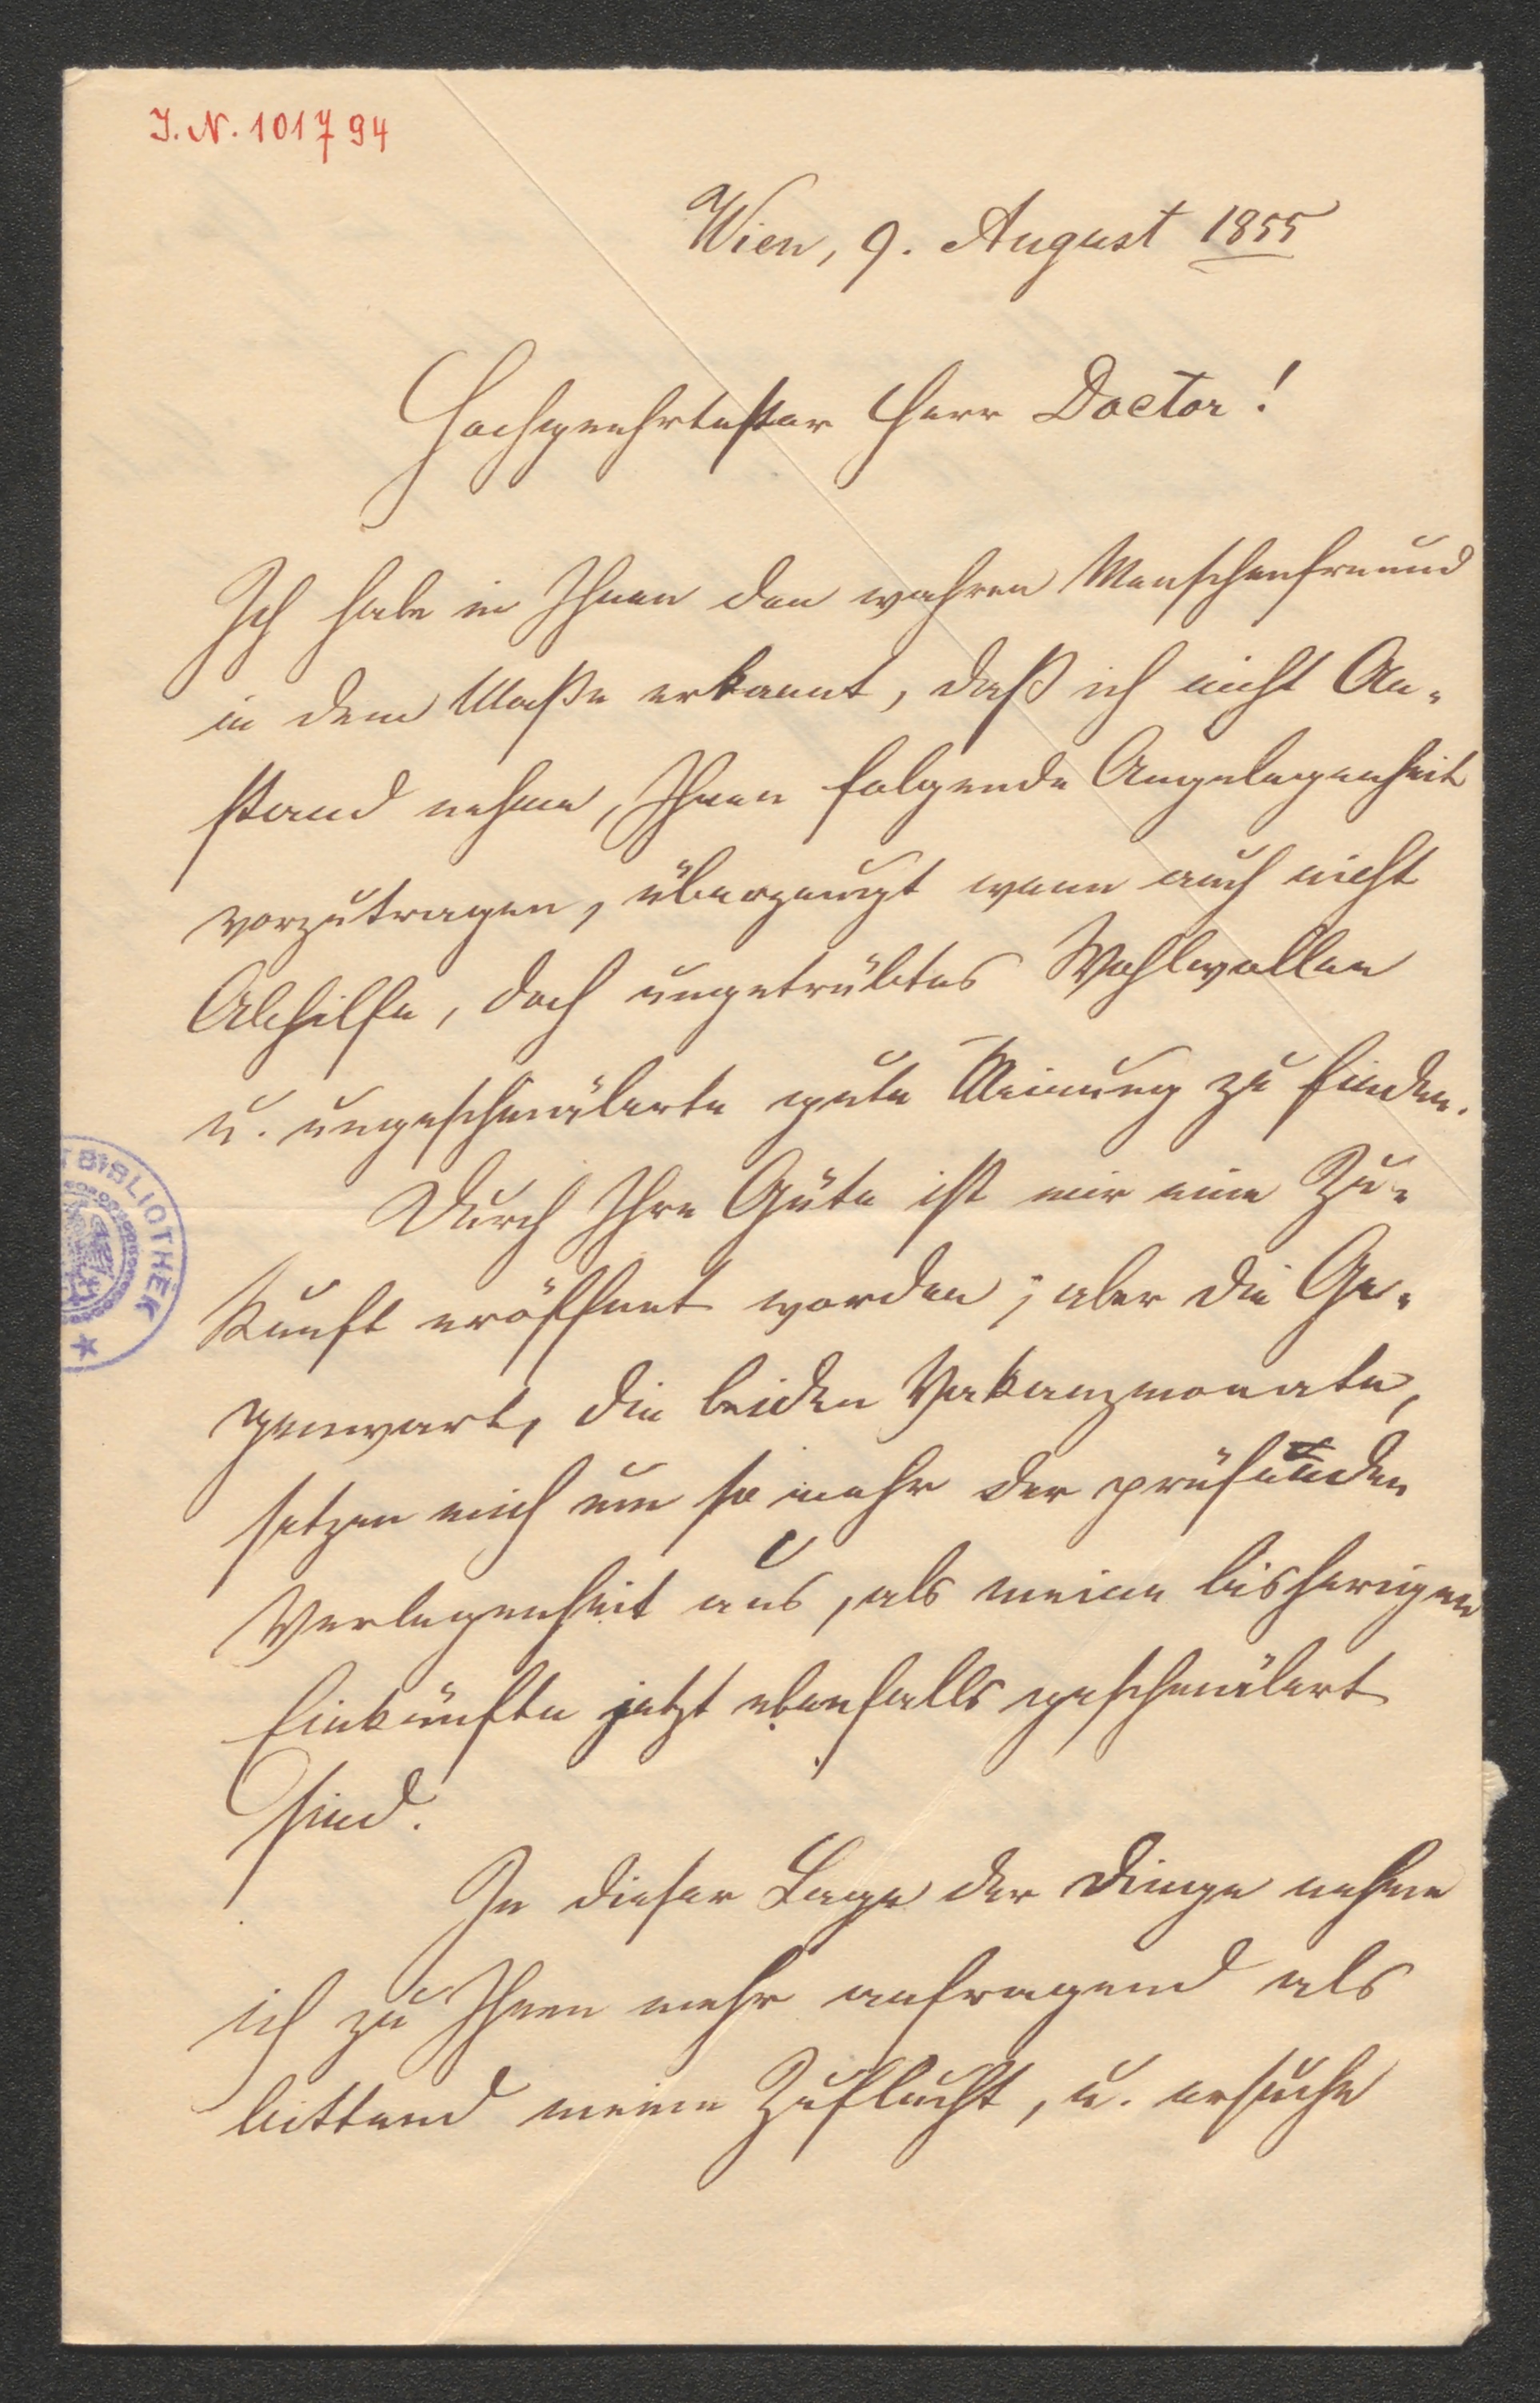 I. N. 101794
Wien, 9. August 1855
Hochgeehrtester Herr Doctor!
Ich habe in Ihnen den wahren Menschenfreund
in dem Maße erkannt, daß ich nicht An-
stand nehme, Ihnen folgende Angelegenheit
vorzutragen, überzeugt wenn auch nicht
Abhilfe, doch ungetrübtes Wohlwollen
u. ungeschmälerte gute Meinung zu finden.
Durch Ihre Güte ist mir eine Zu-
kunft eröffnet worden; aber die Ge-
genwart, die beiden Vakanzmonate,
setzen mich um so mehr der prüfenden
Verlegenheit aus, als meine bisherigen
Einkünfte jetzt ebenfalls geschmälert
sind.
In dieser Lage der Dinge nehme
ich zu Ihnen mehr anfragend als
bittend meine Zuflucht, u. ersuche
BIBLIOTHEK